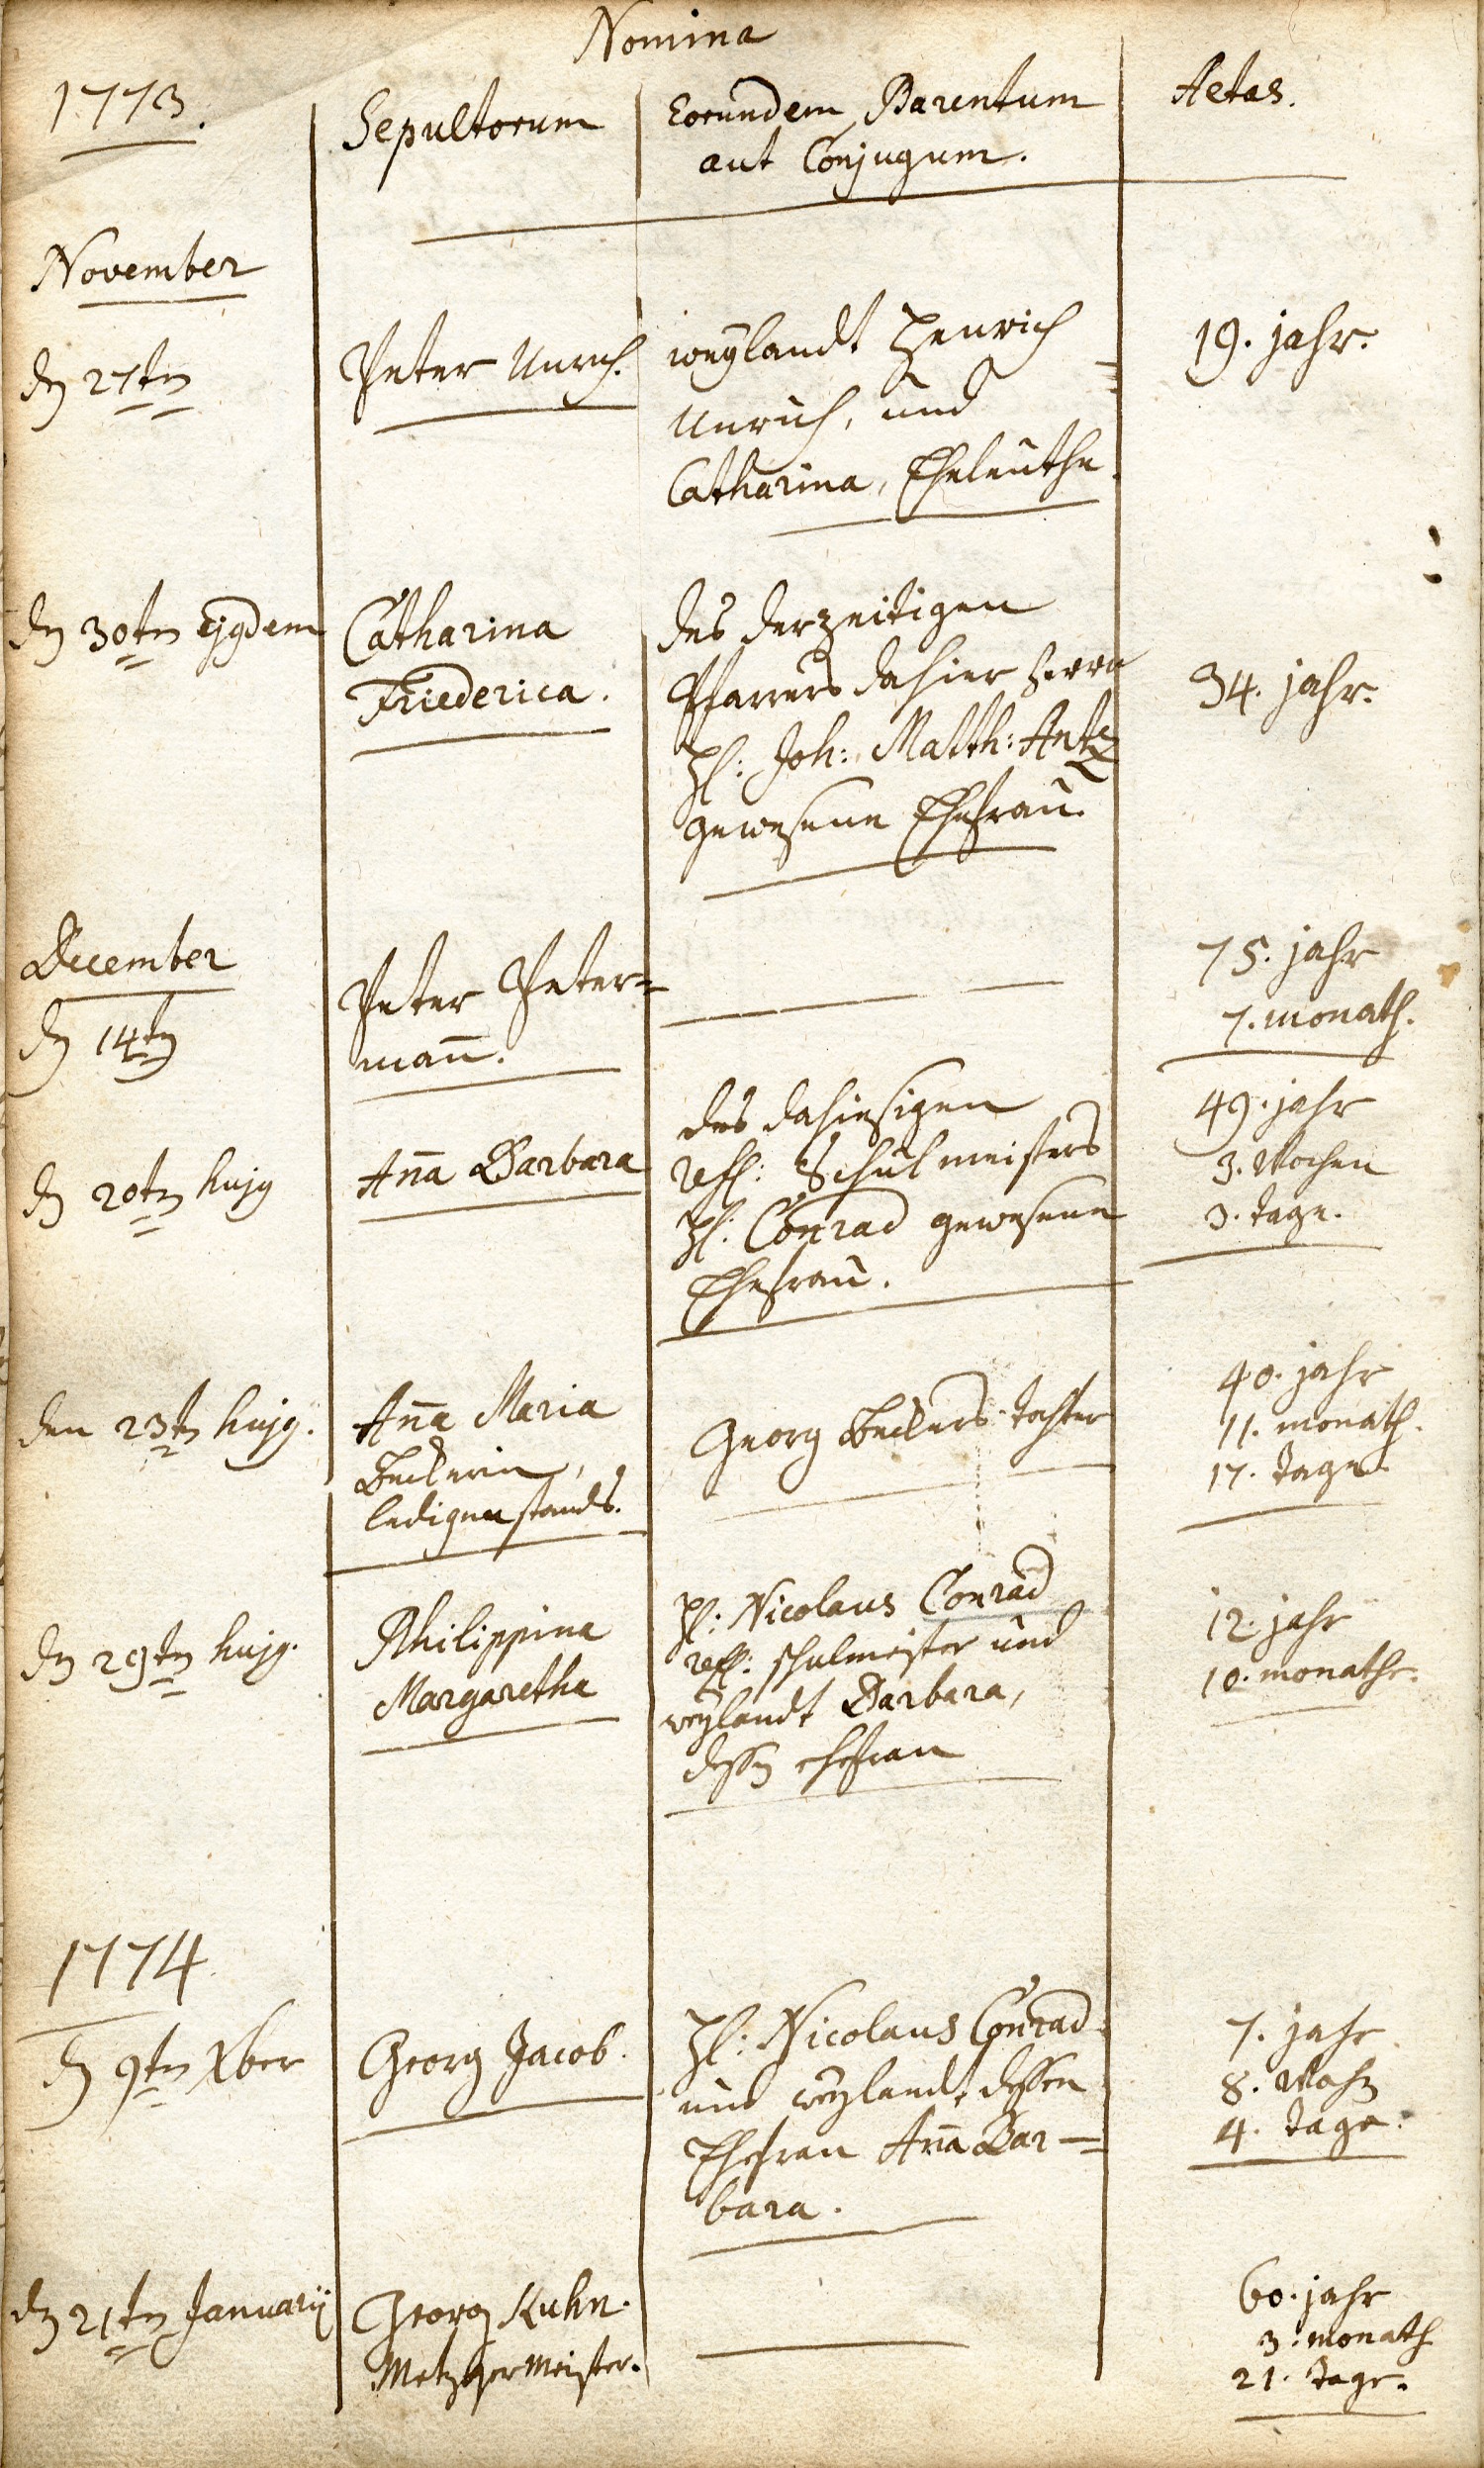 Nomina
1773.
Sepultorum
Eorundem Parentum
aut Conjugum.
Aetas.
November
dn 27tn
Peter Unruh.
weylandt Henrich
Unruh, und
Catharina, Eheleuthe.
19. jahr.
dn 30tn ejgdem
Catharina
Friederica.
des derzeitigen
Pfarrers dahier Herrn
H: Joh: Matth: Antz
gewesene Ehefrau.
34. jahr.
December
dn 14tn
Peter Peter=
mañ.
75. jahr
7. monath.
dn 20tn hujg
Aña Barbara
des dahiesigen
reff: Schulmeisters
H: Conrad gewesene
Ehefrau.
49. jahr
3. Wochen
3. tage.
den 23tn hujg.
Aña Maria
Beckerin,
ledigen stands.
Georg Beckers tochter
40. jahr
11. monath.
17. tage.
dn 29tn hujg.
Philippina
Margaretha
H: Nicolaus Conrad
reff: schulmeister und
weylandt Barbara,
dessen ehefrau
12. jahr
10. monathe.
1774
dn 9tn Xber
Georg Jacob.
H: Nicolaus Conrad
und weylandt dessen
Ehefrau Aña Bar=
bara.
7. jahr
8. Wochn
4. tage.
dn 21tn Januarij
Georg Kuhn.
Metzgermeister.
60. jahr
3. monath
21. tage.